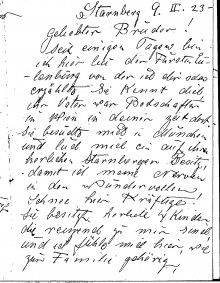 Starnberg 9. II. 23 -
geliebter Bruder!
seit einigen Tagen bin
ich hier bei der Fürstin
von der ich dir
erzählte. Sie kennt dich
ihr Vater war Botschafter
in Wien in deiner
Sie besuchte mich in München
und lud mich ein auf ihren
herrlichen Starnberger Besitz,
damit ich meine Nerven
in der wundervollen
hier kräftige.
Sie besitzt Kinder
die reizend zu mir sind
und ich fühle mich hier, wie
zur Familie gehörig,